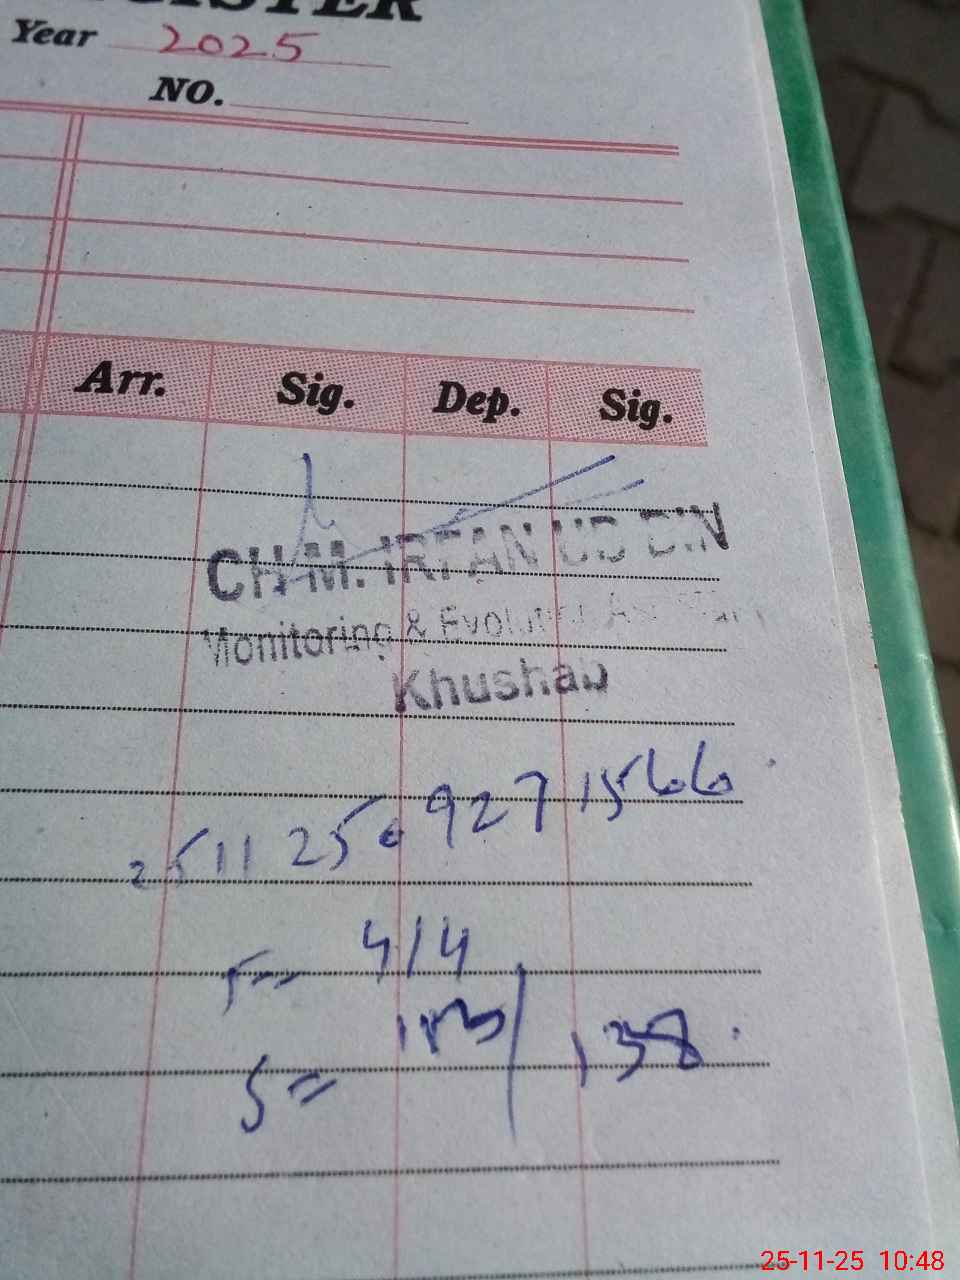 Year 2025
NO.
Arr. Sig. Dep. Sig.
CH M. IRFAN UD DIN
Monitoring &
Khushab
2511250927 1566
T= 4/4
S= / 138
25-11-25 10:48